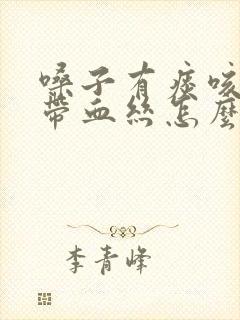 嗓子有痰咳
带血丝怎麼
李青峰